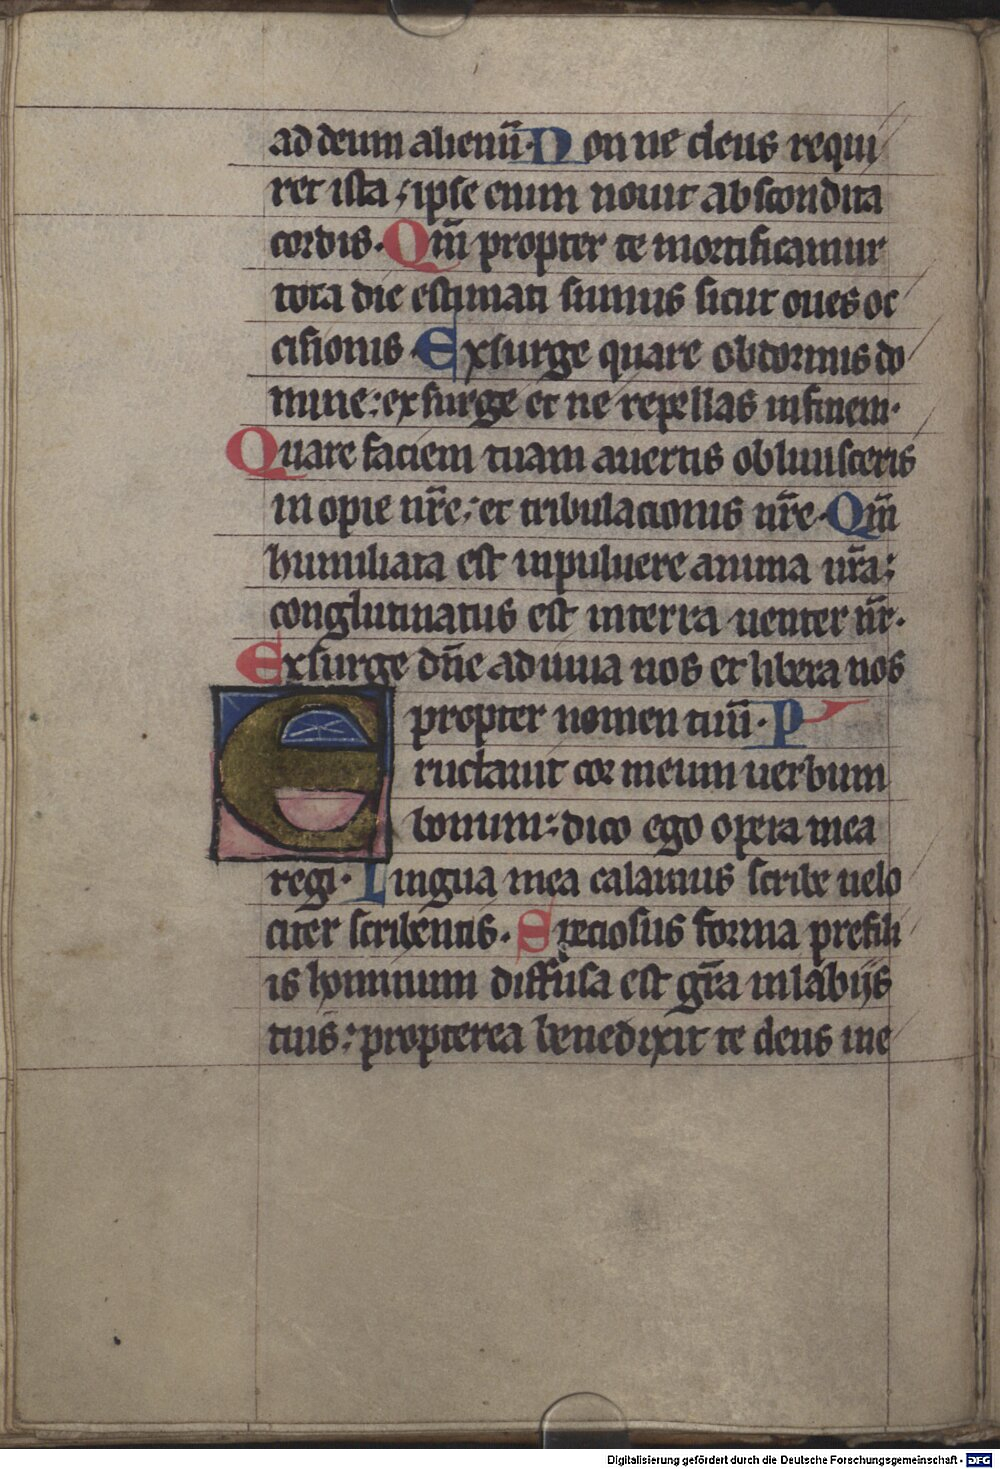 ad deum alienū. Non ne deus requi
ret ista; ipse enim nouit abscondita
cordis. Qm̄ propter te mortificamur
tota die estimati sumus sicut oues oc
cisionis. Exsurge quare obdormis do
mine: exsurge et ne repellas infinem.
Quare faciem tuam auertis obliuisceris
in opie nr̄e; et tribulationis nr̄e. Qm̄
humiliata est inpuluere anima nr̄a;
conglutinatus est interra uenter nr̄.
Exsurge dn̄e adiuua nos et libera nos
propter nomen tuū. P
Eructauit cor meum uerbum
bonum: dico ego opera mea
regi. Lingua mea calamus scribe uelo
citer scribentis. Speciosus forma prefili
is hominum diffusa est gr̄a inlabijs
tuis: propterea benedixit te deus ine
Digitalisierung gefördert durch die Deutsche Forschungsgemeinschaft - DFG